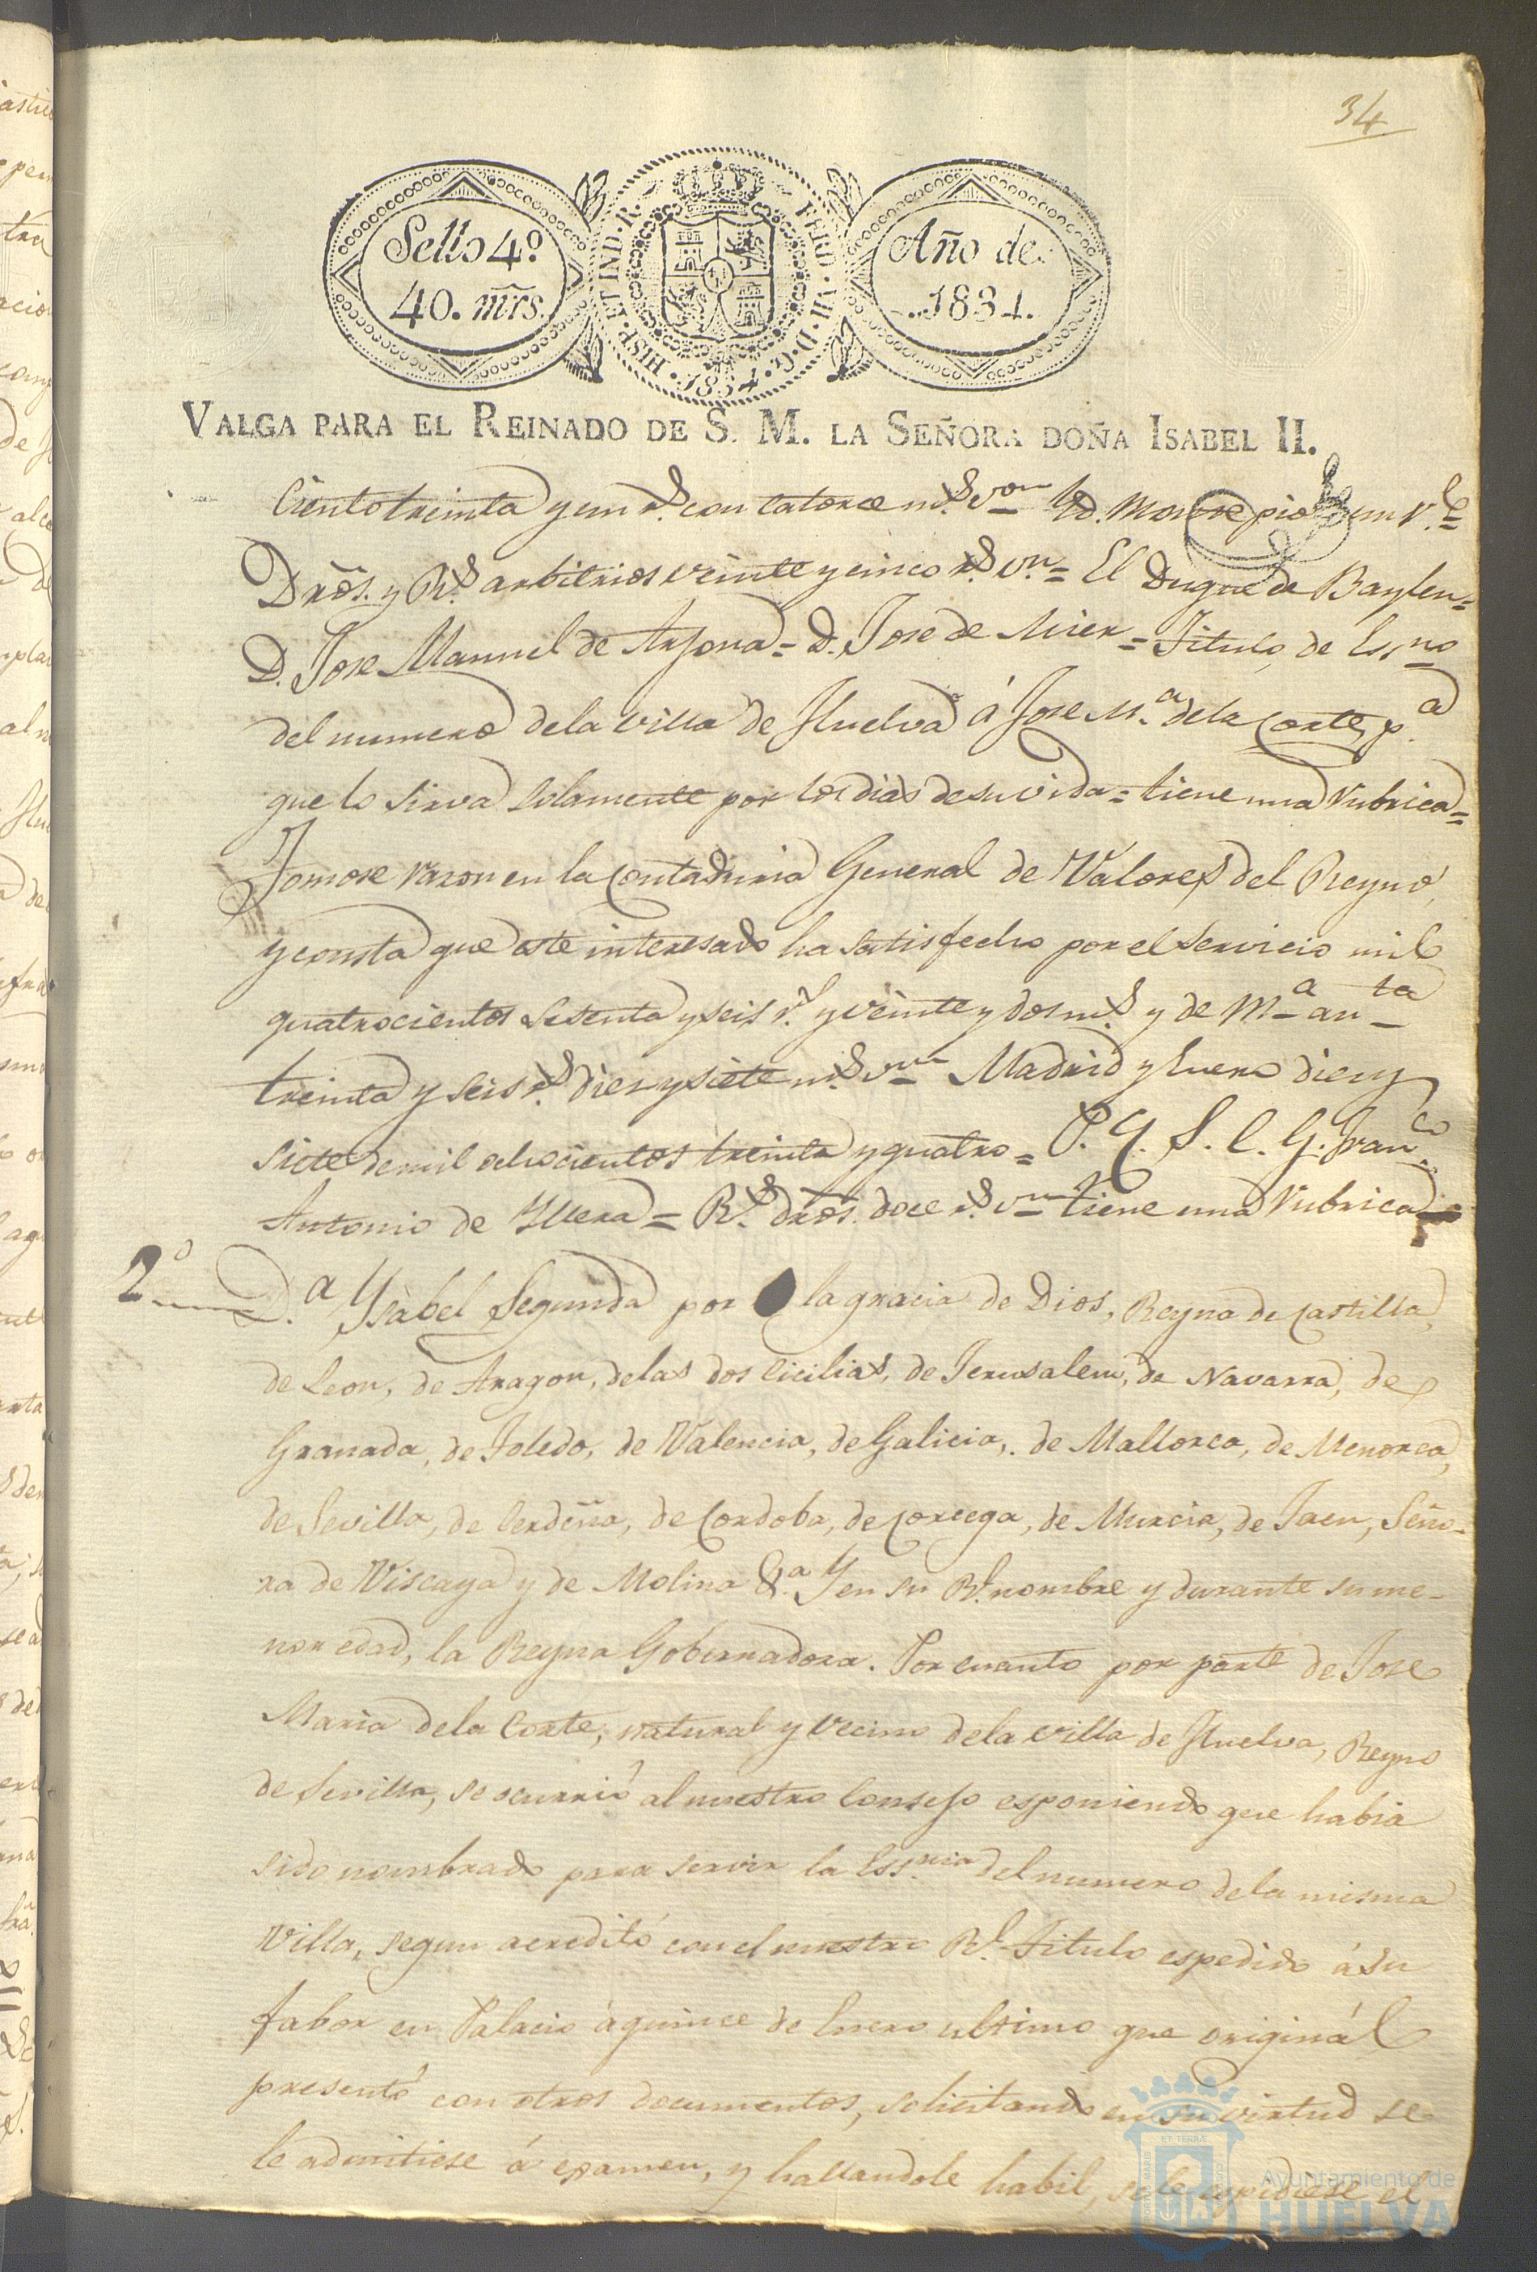 34
Sello 4º
40. mrs.
HISP. ET IND. R. FERD. VII. D. G. 1834
Año de
1834.
VALGA PARA EL REINADO DE S. M. LA SEÑORA DOÑA ISABEL II.
Ciento treinta y un rs. con catorce ms. von
Dros. y Rs. arbitrios veinte y cinco rs. vn = El Duque de Baylen =
D. Jose Manuel de Arjona = D. Jose de Mier = Titulo de Essno
del numero dela villa de Huelva á Jose Ma. dela Corte, pa.
que lo sirva solamente por los dias desu vida = tiene una rubrica =
Tomose razon en la Contaduria General de Valores del Reyno,
y consta que este interesado ha satisfecho por el servicio mil
quatrocientos sesenta y seis rs. y veinte y dos ms. y de Ma an ta
treinta y seis rs. diez y siete ms. von Madrid y Enero diez y
siete de mil ochocientos treinta y quatro = P. Y. S. C. G. Franco.
Antonio de Yllera = Rs. dros. doce rs. vn tiene una rubrica =
2º
D.a Ysabel Segunda por la gracia de Dios, Reyna de Castilla,
de Leon, de Aragon, delas dos Cicilias, de Jerusalem, de Navarra, de
Granada, de Toledo, de Valencia, de Galicia, de Mallorca, de Menorca,
de Sevilla, de Cerdeña, de Cordoba, de Corcega, de Murcia, de Jaen, Seño-
ra de Viscaya y de Molina &.a Y en su Rl. nombre y durante su me-
nor edad, la Reyna Gobernadora. Por cuanto por parte de Jose
Maria dela Corte, natural y vecino dela villa de Huelva, Reyno
de Sevilla, se ocurrió al nuestro Consejo esponiendo que habia
sido nombrado para servir la Ess.nia del numero dela misma
Villa, segun acreditó con el nuestro Rl. Titulo espedido á su
fabor en Palacio á quince de Enero ultimo que originál
presentó con otros documentos, solicitando en su virtud se
le admitiese á examen, y hallandole habil, se le espidiese el
Ayuntamiento de
HUELVA